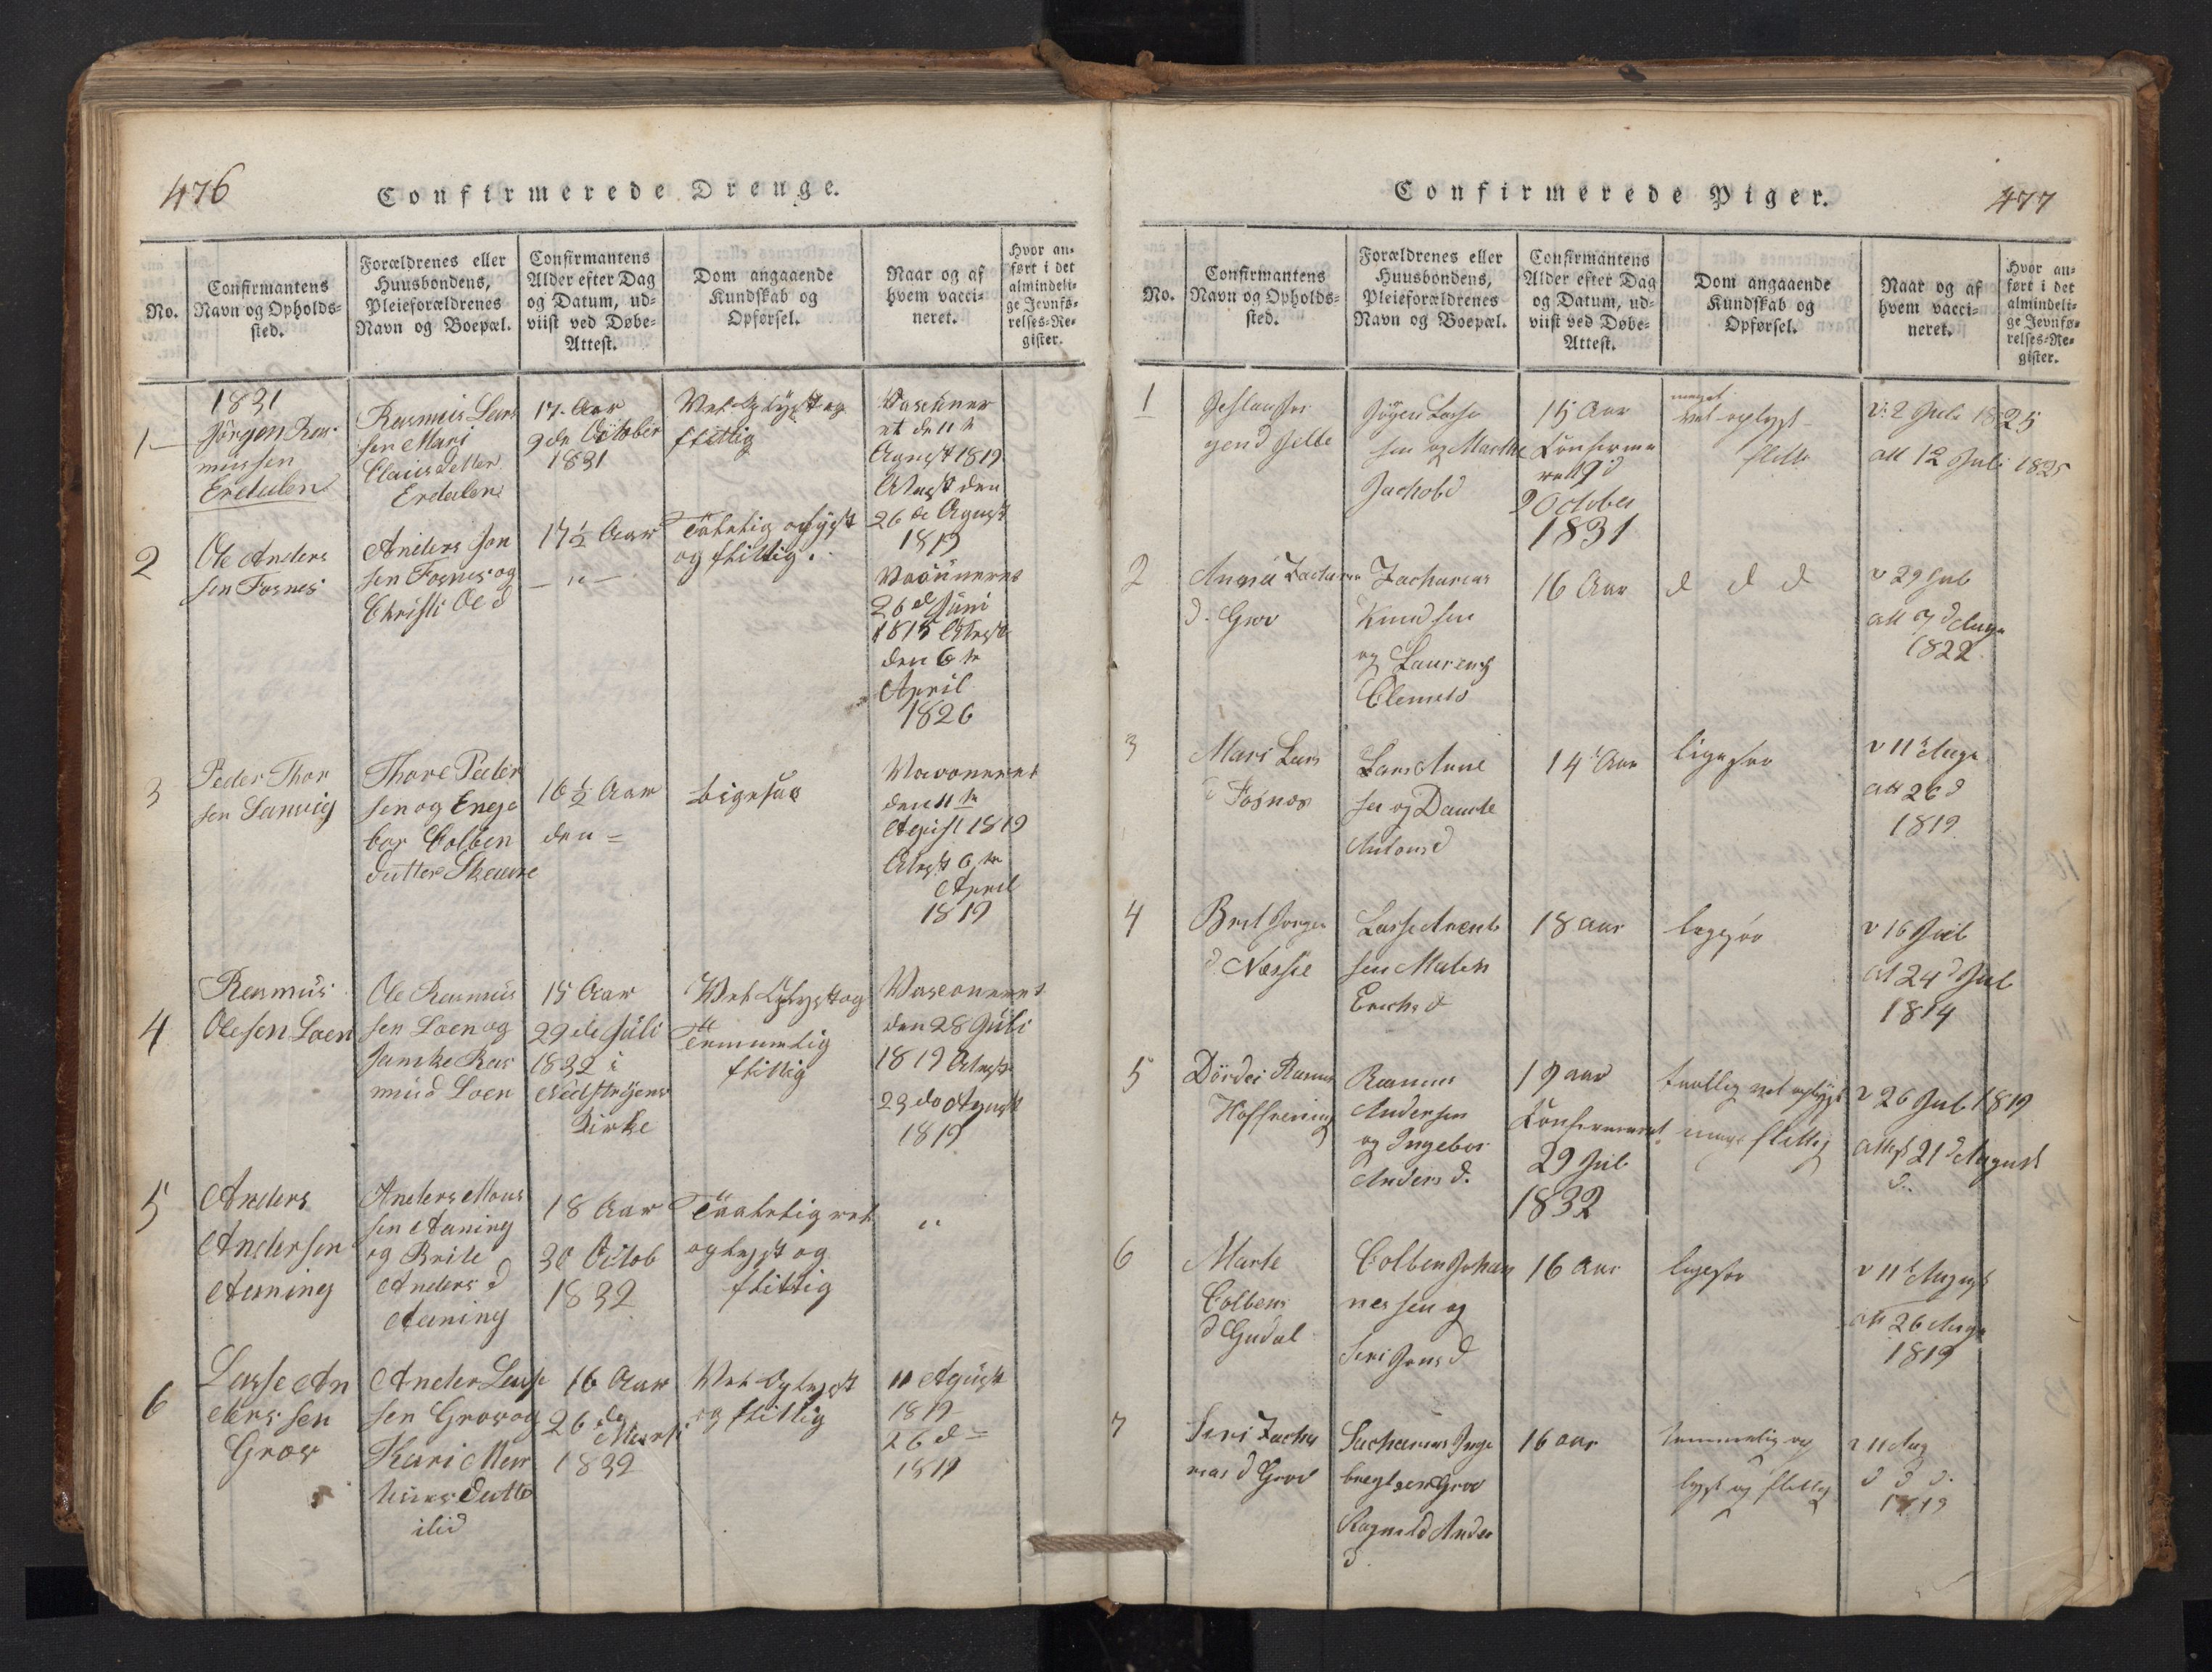 476
Confirmerede Drenge.
No.
Confirmantens
Navn og Opholds-
sted.
Forældrenes eller
Huusbondens,
Pleieforældrenes
Navn og Boepæl.
Confirmantens
Alder efter Dag
og Datum, ud-
viist ved Døbe-
Attest.
Dom angaaende
Kundskab og
Opførsel.
Naar og af
hvem vacci-
neret.
Hvor an-
ført i det
almindeli-
ge Jevnfø-
relses-Re-
gister.
1831
1
Jørgen Ras
mussen
Erdalen
Rasmus Lars
sen Mari
Claus
Erdalen
17 Aar
9de October
1831
Vel Oplyst og
flittig
et de 11te
Agust 1819
Atest den
26de Agust
1819
2
Ole Anders
sen Fosnes
Anders Jon
sen Fosnes og
Christi Ole d
17½ Aar
— " —
Taalelig oplyst
og flittig.
26de Juni
1815 Atest
den 6te
April
1826
3
Peder Thor
sen Sanvig
Thore Peder
sen og Enge
bor Colben
dutter Skaare
16½ Aar
den =
Ligesaa
den 11te
Agust 1819
Atest 6te
April
1819
4
Rasmus
Olesen Loen
Ole Rasmus
sen Loen og
Janske Ras
mus d Loen
15 Aar
29de Juli
1832 i
Nedstryens
Kirke
Vel Oplyst og
Temmelig
flittig
Vaccineret
den 28 Juli
1819 Atest
23de Agust
1819
5
Anders
Andersen
Aaning
Anders Mons
sen Aaning
og Brite
Anders d
Aaning
18 Aar
30 Octob
1832
Taalelig vel
oplyst og
flittig
"
6
Lasse An
ders sen
Grov
Ander Lasse
sen Grov og
Kari Mon
16 Aar
26de
1832
Vel Oplyst
og flittig
11 Agust
1819
26 d =
1819
Confirmerede Piger.
477
No.
Confirmantens
Navn og Opholds-
sted.
Forældrenes eller
Huusbondens,
Pleieforældrenes
Navn og Boepæl.
Confirmantens
Alder efter Dag
og Datum, ud-
viist ved Døbe-
Attest.
Dom angaaende
Kundskab og
Opførsel.
Naar og af
hvem vacci-
neret.
Hvor an-
ført i det
almindeli-
ge Jevnfø-
relses-Re-
gister.
1
sen og Marthe
Jachob d
15 Aar
Confirme
October
1831
meget
vel oplyst
v: 2 Juli 1825
att 12 Juli 1825
2
Anna Zacha
d. Grov
Zacharias
Knudsen
og
16 Aar
d d d
v 29 Jul
1822
3
Mari Lars
d Fosnes
Lars Anne
sen og Danete
Antons d
14 Aar
ligesaa
v 11 Aug
att 26 d
1819
4
Brit Jørgen
d. Nesse
Lasse Arent
sen Malen
Erichs d
18 aar
ligesaa
v 16 Jul
at 24 d Jul
1814
5
Dördei Rasmus
Rasmus
Andersen
og Ingebor
Anders d.
19 aar
29 Jul
1832
taalelig vel oplyst
flittig
v 26 Jul 1819
attest 21 d August
d.
6
Marte
Colbens
d Gudal
Colben Johan
nessen og
Seri Jens d
16 aar
ligesaa
v 11 August
att 26 Aug
1819
7
Seri Zacha
rias d Grov
Sacharias Inge
bregtsen Grov
Ragnild Anders
d
16 aar
temmelig op
lyst og flittig
v 11 Aug
d d d.
1819